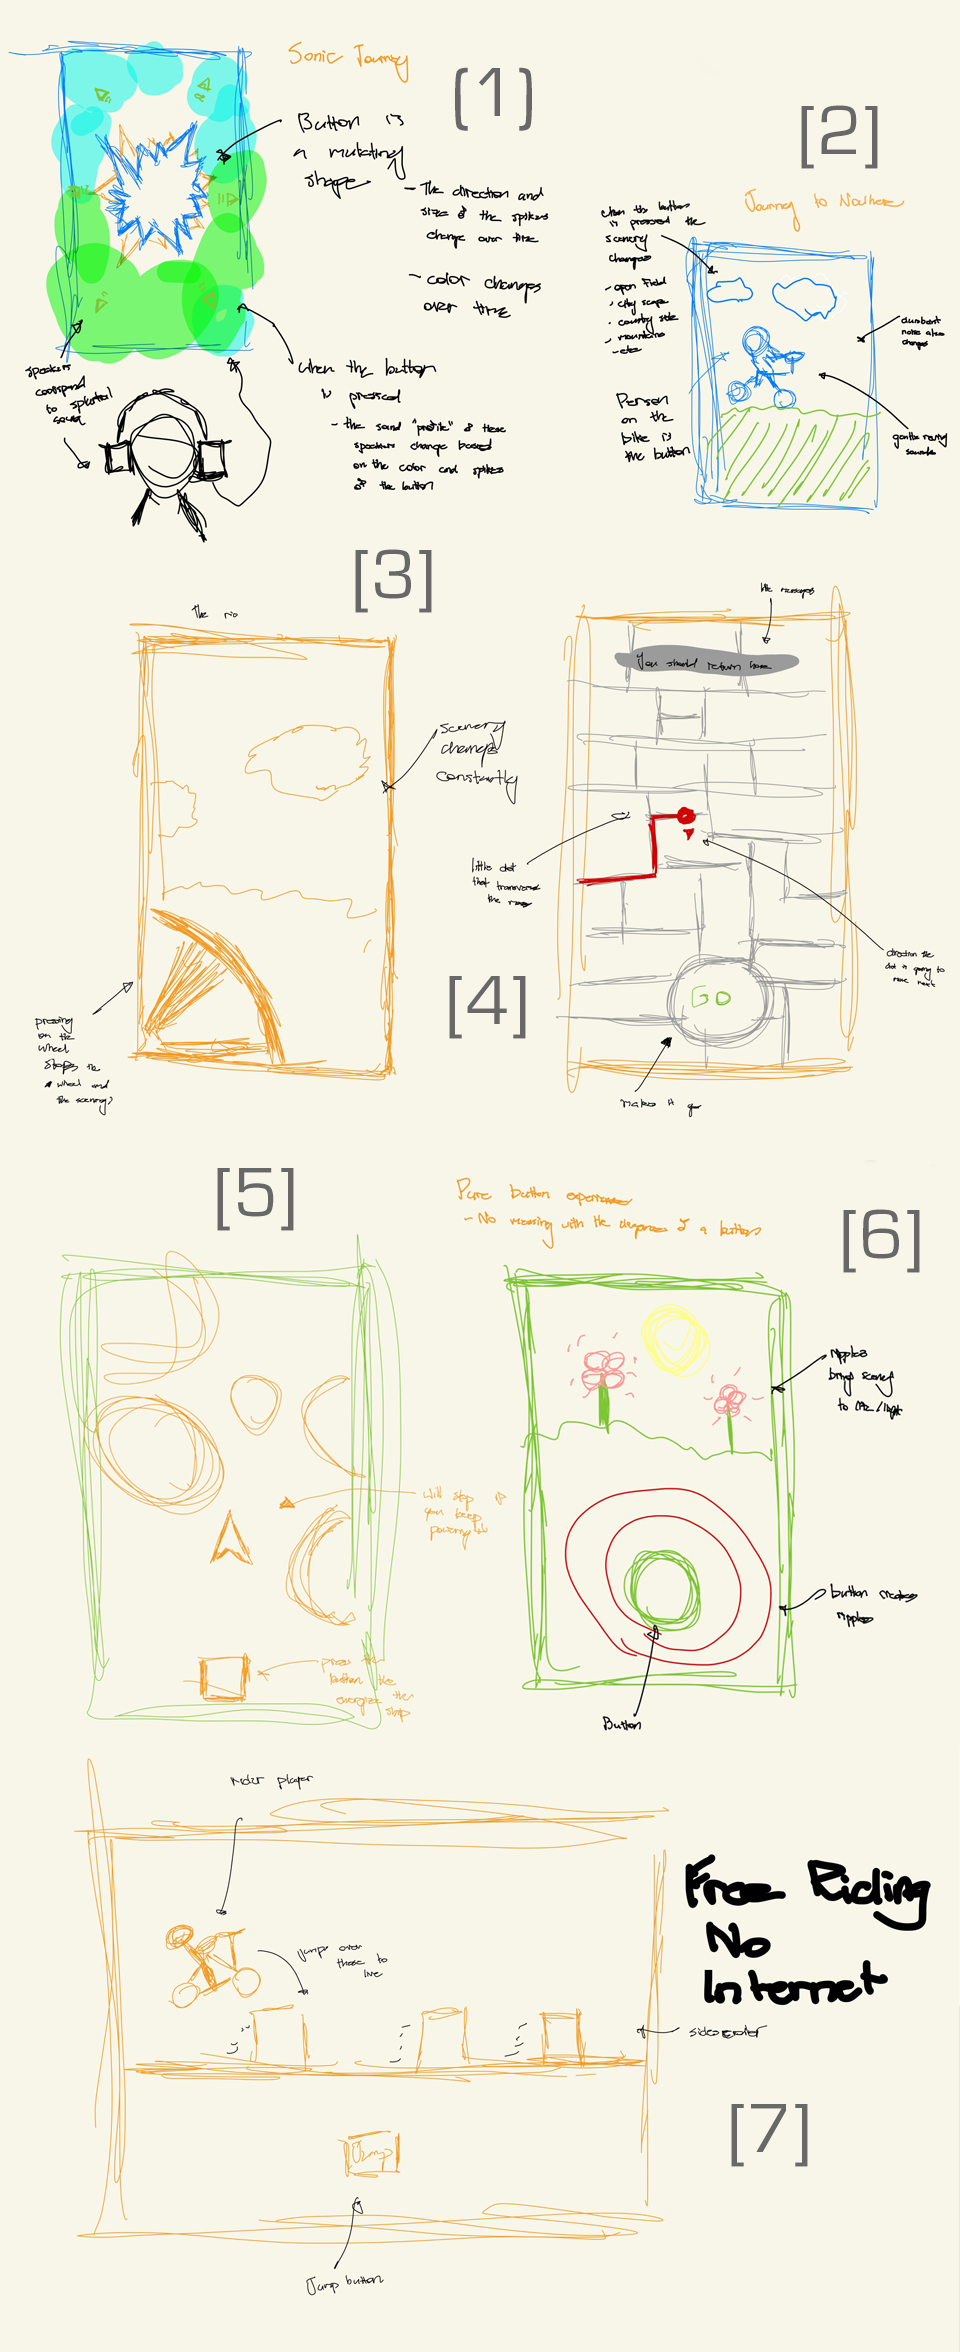 Sonic Journey
[1]
Button is
a mutating
shape
- The direction and
size of the spikes
change over time
- color changes
over time
when the button
is pressed
- the sound "profile" of these
speakers change based
on the color and spikes
of the button
speakers
correspond
to
[2]
Journey to Nowhere
when the button
is pressed the
scenery
changes
- open field
- city scape
- country side
- mountains
- etc
Person
on the
bike is
the button
also
changes
sounds
[3]
The
scenery
changes
constantly
pressing
on the
wheel
stops the
wheel and
the scenery?
[4]
messages
You should return home
little dot
that
the map
direction the
dot is going to
move next
GO
makes it go
[5]
will stop if
you keep
press the
button to
energize the
ship
[6]
Pure button experience
- No messing with the elegance of a button
ripples
bring scenery
to life/light
button creates
ripples
Button
[7]
rider player
jumps over
these to
live
Free Riding
No
Internet
Jump
Jump button